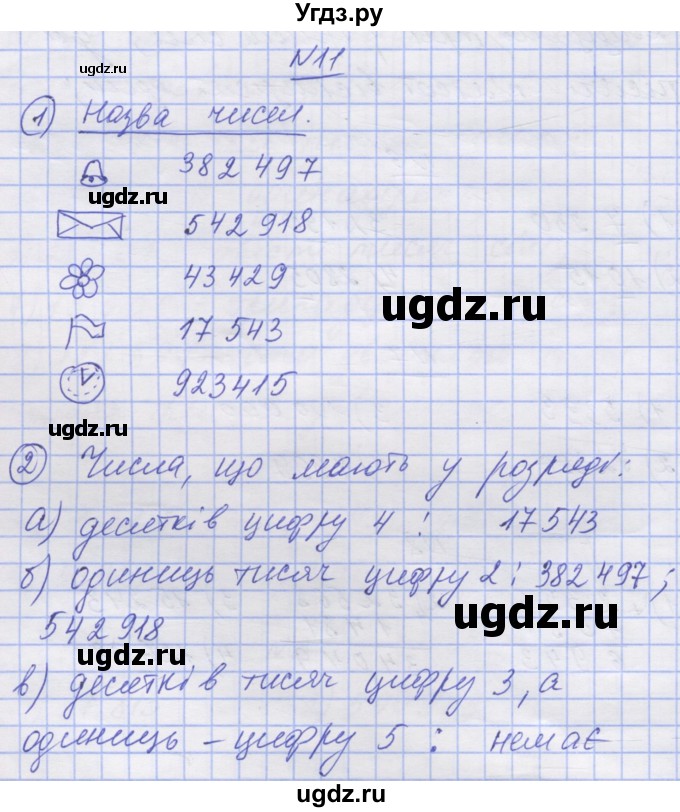 Угдз.ру
ugdz.ru
№11
1) Назва чисел.
382 497
ugdz.ru
542 918
43 429
ugdz.ru
17 543
923415
ugdz.ru
2) Числа, що мають у розряді:
а) десятків цифру 4: 17543
б) одиниць тисяч цифру 2: 382 497;
ugdz.ru
542 918
ugdz.ru
в) десятків тисяч цифру 3, а
одиниць – цифру 5: немає
ugdz.ru